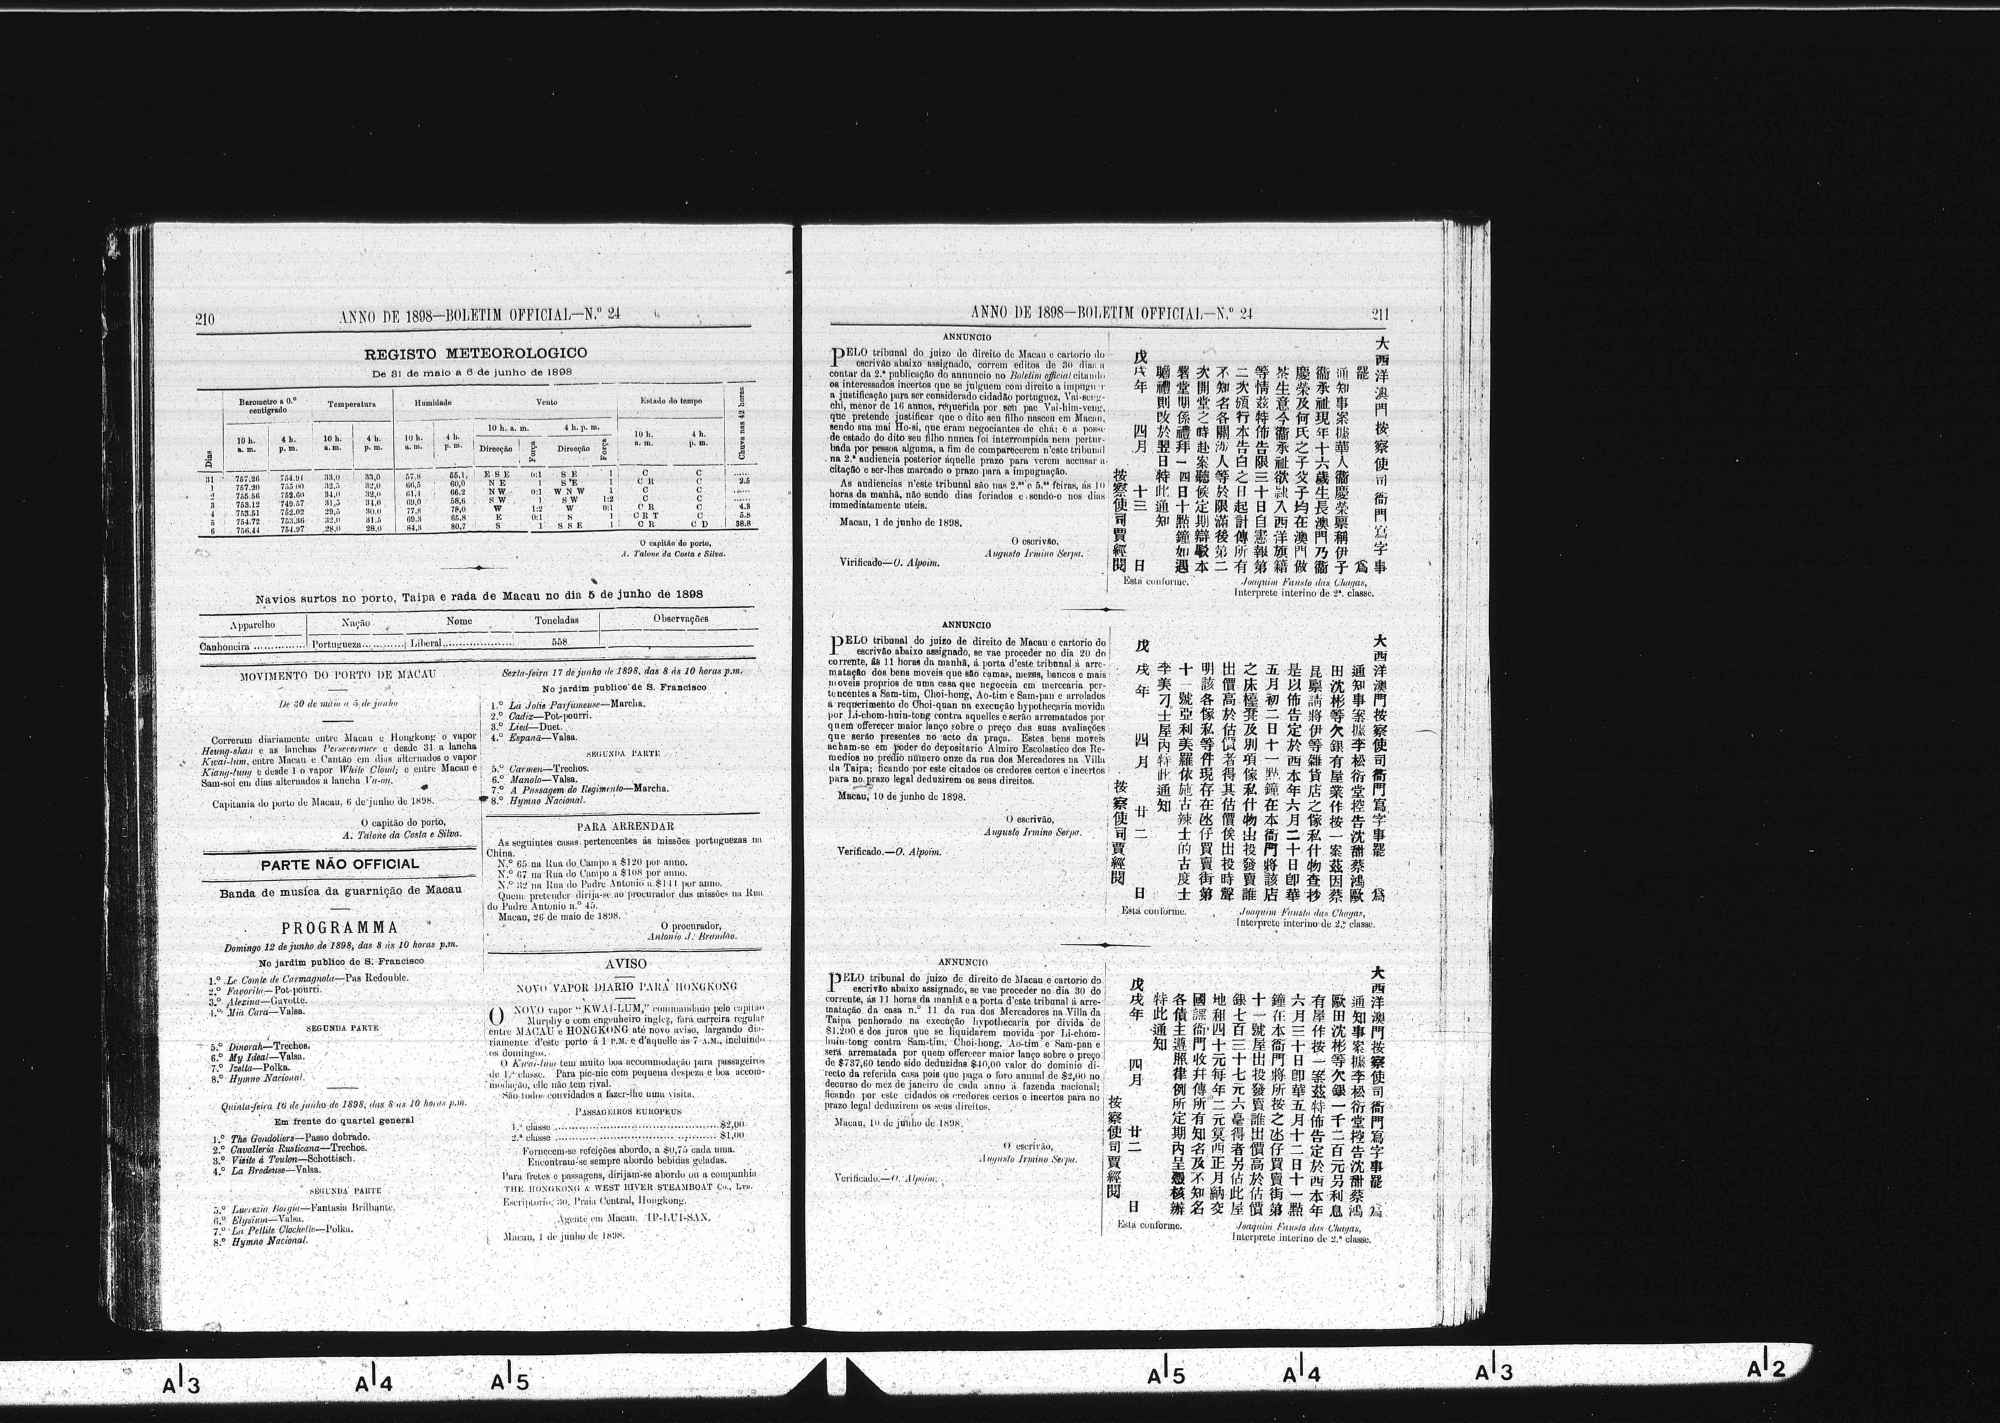 210
ANNO DE 1898—BOLETIM OFFICIAL—N.º 24
REGISTO METEOROLOGICO
De 31 de maio a 6 de junho de 1898
Dias
Barometro a 0.º centigrado
Temperatura
Humidade
Vento
Estado do tempo
Chuva nas 42 horas
10 h. a. m.
4 h. p. m.
10 h. a. m.
4 h. p. m.
10 h. a. m.
4 h. p. m.
10 h. a. m.
4 h. p. m.
10 h. a. m.
4 h. p. m.
Direcção
Força
Direcção
Força
31 757,26 754.91 33,0 33,0 57,8 55,1 E S E 0:1 S E 1 C C ......
1 757.20 755 00 32,5 32,0 66,5 60,0 N E 1 S E 1 C R C 2.5
2 755.56 752.60 34,0 32,0 61,4 66.2 N W 0:1 W N W 1 C C ......
3 753.12 749.57 31,5 34,0 69,0 58,6 S W 1 S W 1:2 C C ......
4 753.51 752.02 29,5 30.0 77,8 78,0 W 1:2 W 0:1 C R C 4.8
5 754.72 753,36 32,0 31.5 69,3 65,8 E 0:1 S 1 C R T C 5.8
6 756.44 754.97 28,0 28,0 84,3 80,7 S 1 S S E 1 C R C D 38.8
O capitão do porto,
A. Talone da Costa e Silva.
Navios surtos no porto, Taipa e rada de Macau no dia 5 de junho de 1898
Apparelho Nação Nome Toneladas Observações
Canhoneira Portugueza Liberal 558
MOVIMENTO DO PORTO DE MACAU
De 30 de maio a 5 de junho
Correram diariamente entre Macau e Hongkong o vapor
Heung-shan e as lanchas Perseverance e desde 31 a lancha
Kwai-lum, entre Macau e Cantão em dias alternados o vapor
Kiang-tung e desde 1 o vapor White Cloud; e entre Macau e
Sam-soi em dias alternados a lancha Vu-on.
Capitania do porto de Macau, 6 de junho de 1898.
O capitão do porto,
A. Talone da Costa e Silva.
PARTE NÃO OFFICIAL
Banda de musica da guarnição de Macau
PROGRAMMA
Domingo 12 de junho de 1898, das 8 ás 10 horas p.m.
No jardim publico de S. Francisco
1.º Le Comte de Carmagnola—Pas Redouble.
2.º Favorita—Pot-pourri.
3.º Alezina—Gavotte.
4.º Mia Cara—Valsa.
SEGUNDA PARTE
5.º Dinorah—Trechos.
6.º My Ideal—Valsa.
7.º Izella—Polka.
8.º Hymno Nacional.
Quinta-feira 16 de junho de 1898, das 8 ás 10 horas p.m.
Em frente do quartel general
1.º The Gondoliers—Passo dobrado.
2.º Cavalleria Rusticana—Trechos.
3.º Visite á Toulon—Schottisch.
4.º La Brodeuse—Valsa.
SEGUNDA PARTE
5.º Lucrezia Borgia—Fantasia Brilhante.
6.º Elysium—Valsa.
7.º La Pettite Clochette—Polka.
8.º Hymno Nacional.
Sexta-feira 17 de junho de 1898, das 8 ás 10 horas p.m.
No jardim publico de S. Francisco
1.º La Jolie Parfumeuse—Marcha.
2.º Cadiz—Pot-pourri.
3.º Lied—Duet.
4.º Espanã—Valsa.
SEGUNDA PARTE
5.º Carmen—Trechos.
6.º Manolo—Valsa.
7.º A Passagem do Regimento—Marcha.
8.º Hymno Nacional.
PARA ARRENDAR
As seguintes casas pertencentes ás missões portuguezas na
China.
N.º 65 na Rua do Campo a $120 por anno.
N.º 67 na Rua do Campo a $108 por anno.
N.º 32 na Rua do Padre Antonio a $144 por anno.
Quem pretender dirija-se ao procurador das missões na Rua
do Padre Antonio n.º 45.
Macau, 26 de maio de 1898.
O procurador,
Antonio J. Brandão.
AVISO
NOVO VAPOR DIARIO PARA HONGKONG
O NOVO vapor “KWAI-LUM,” commandado pelo capitão
Murphy e com engenheiro inglez, fará carreira regular
entre MACAU e HONGKONG até novo aviso, largando dia-
riamente d'este porto á 1 P.M. e d'aquelle ás 7 A.M., incluindo
os domingos.
O Kwai-lum tem muito boa accommodação para passageiros
de 1.ª classe. Para pic-nic com pequena despeza e boa accom-
modação, elle não tem rival.
São todos convidados a fazer-lhe uma visita.
PASSAGEIROS EUROPEUS
1.ª classe ........ $2,00
2.ª classe ........ $1,00
Fornecem-se refeições abordo, a $0,75 cada uma.
Encontram-se sempre abordo bebidas geladas.
Para fretes e passagens, dirijam-se abordo ou a companhia
THE HONGKONG & WEST RIVER STEAMBOAT Co., LTD.
Escriptorio, 30, Praia Central, Hongkong.
Agente em Macau, IP-LUI-SAN.
Macau, 1 de junho de 1898.
ANNO DE 1898—BOLETIM OFFICIAL—N.º 24
211
ANNUNCIO
PELO tribunal do juizo de direito de Macau e cartorio do
escrivão abaixo assignado, correm editos de 30 dias a
contar da 2.ª publicação do annuncio no Boletim official citando
os interessados incertos que se julguem com direito a impugnar
a justificação para ser considerado cidadão portuguez, Vai-seng-
chi, menor de 16 annos, requerida por seu pae Vai-him-veng,
que pretende justificar que o dito seu filho nasceu em Macau,
sendo sua mai Ho-si, que eram negociantes de chá; e a posse
de estado do dito seu filho nunca foi interrompida nem pertur-
bada por pessoa alguma, a fim de comparecerem n'este tribunal
na 2.ª audiencia posterior áquelle prazo para verem accusar a
citação e ser-lhes marcado o prazo para a impugnação.
As audiencias n'este tribunal são nas 2.as e 5.as feiras, ás 10
horas da manhã, não sendo dias feriados e sendo-o nos dias
immediatamente uteis.
Macau, 1 de junho de 1898.
O escrivão,
Augusto Irmino Serpa.
Virificado—O. Alpoim.
大西洋澳門按察使司衙門寫字事
罷 爲
通知事案據華人衞慶榮禀稱伊子
衞承祉現年十六歲生長澳門乃衞
慶榮及何氏之子父子均在澳門做
茶生意今衞承祉欲隸入西洋旗籍
等情茲特佈告限三十日自憲報第
二次頒行本告白之日起計傳所有
不知名各關涉人等於限滿後第二
次開堂之時赴案聽候定期辯駁本
署堂期係禮拜一四日十點鐘如遇
瞻禮則改於翌日特此通知
戊戌年 四月 十三 日
按察使司賈經閱
Está conforme.
Joaquim Fausto das Chagas,
Interprete interino de 2ª. classe.
ANNUNCIO
PELO tribunal do juizo de direito de Macau e cartorio do
escrivão abaixo assignado, se vae proceder no dia 20 do
corrente, ás 11 horas da manhã, á porta d'este tribunal á arre-
matação dos bens moveis que são camas, mezas, bancos e mais
moveis proprios de uma casa que negoceia em mercearia per-
tencentes a Sam-tim, Choi-hong, Ao-tim e Sam-pan e arrolados
a requerimento de Choi-quan na execução hypothecaria movida
por Li-chom-huin-tong contra aquelles e serão arrematados por
quem offerecer maior lanço sobre o preço das suas avaliações
que serão presentes no acto da praça. Estes bens moveis
acham-se em poder do depositario Almiro Escolastico dos Re-
medios no predio numero onze da rua dos Mercadores na Villa
da Taipa; ficando por este citados os credores certos e incertos
para no prazo legal deduzirem os seus direitos.
Macau, 10 de junho de 1898.
O escrivão,
Augusto Irmino Serpa.
Verificado.—O. Alpoim.
大西洋澳門按察使司衙門寫字事罷 爲
通知事案據李松衍堂控告沈甜蔡鴻歐
田沈彬等欠銀有屋業作按一案茲因蔡
昆稟請將伊等雜貨店之傢私什物查抄
是以佈告定於西本年六月二十日卽華
五月初二日十一點鐘在本衙門將該店
之床檯凳及別項傢私什物出投發賣誰
出價高於估價者得其估價俟出投時聲
明該各傢私等件現存在氹仔買賣街第
十一號亞利美羅依施古辣士的古度士
李美刁士屋內特此通知
戊戌年 四月 廿二 日
按察使司賈經閱
Está conforme.
Joaquim Fausto das Chagas,
Interprete interino de 2.ª classe.
ANNUNCIO
PELO tribunal do juizo de direito de Macau e cartorio do
escrivão abaixo assignado, se vae proceder no dia 30 do
corrente, ás 11 horas da manhã e a porta d'este tribunal á arre-
matação da casa n.º 11 da rua dos Mercadores na Villa da
Taipa penhorado na execução hypothecaria por divida de
$1.200 e dos juros que se liquidarem movida por Li-chom-
huin-tong contra Sam-tim, Choi-hong, Ao-tim e Sam-pan e
será arrematada por quem offerecer maior lanço sobre o preço
de $737,60 tendo sido deduzidas $40,00 valor do dominio di-
recto da referida casa pois que paga o foro annual de $2,00 no
decurso do mez de janeiro de cada anno á fazenda nacional;
ficando por este citados os credores certos e incertos para no
prazo legal deduzirem os seus direitos.
Macau, 10 de junho de 1898.
O escrivão,
Augusto Irmino Serpa.
Verificado.—O. Alpoim.
大西洋澳門按察使司衙門寫字事罷 爲
通知事案據李松衍堂控告沈甜蔡鴻
歐田沈彬等欠銀一千二百元另利息
有屋作按一案茲特佈告定於西本年
六月三十日卽華五月十二日十一點
鐘在本衙門將所按之氹仔買賣街第
十一號屋出投發賣誰出價高於估價
銀七百三十七元六毫得者另估此屋
地租四十元每年二元莫西正月納交
國課衙門收幷傳所有知名及不知名
各債主遵照律例所定期內呈憑核辦
特此通知
戊戌年 四月 廿二 日
按察使司賈經閱
Está conforme.
Joaquim Fausto das Chagas,
Interprete interino de 2.ª classe.
A 3 A 4 A 5 A 5 A 4 A 3 A 2